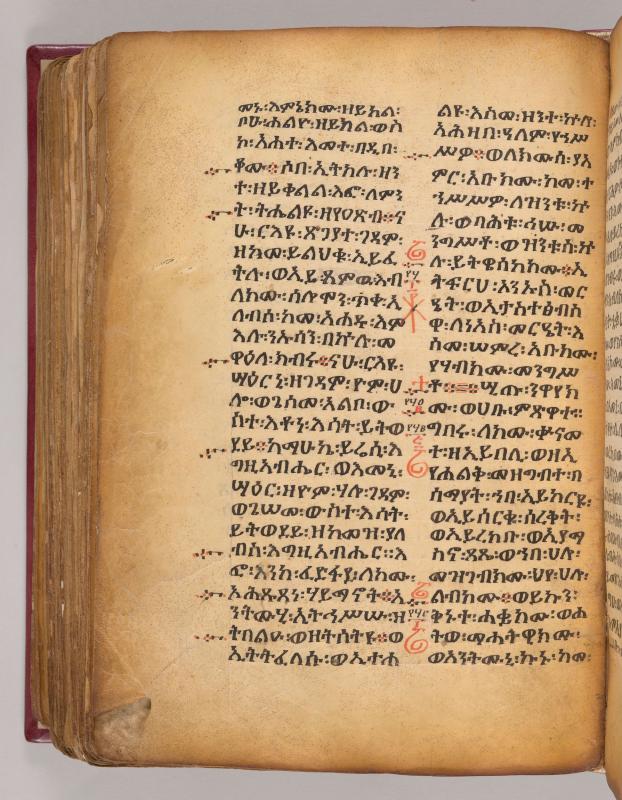 መኑ፡እምኔክሙ፡ዘይክል፡
በሁ፡ሐልዮ፡ዘይክል፡ወስ
ኮ፡አሐተ፡እመተ፡በዲበ፡
ቆሙ።ሶበ፡ኢትክሉ፡ዘን
ተ፡ዘይቀልል፡እፎ፡ለምን
ት፡ትሔልዩ፡ዘየዐጽብ።ና
ሁ፡ርእዩ፡ጽጌያተ፡ገዳም፡
ዘከመ፡ይልህቁ፡ኢይፈ
ትሉ፡ወኢይ
ለክሙ፡ሰሎሞን፡ጥቀ፡ኢ
ለብሰ፡ከመ፡አሐዱ፡እም
እሉ፡ንኡሳን፡በኵሉ፡መ
ዋዕለ፡ክብሩ።ናሁ፡ርእዩ፡
ሣዕርኒ፡ዘገዳም፡ዮም፡ሀ
ሎ፡ወጌሰመ፡አልቦ፡ው
ስተ፡እቶነ፡እሳት፡ይትወ
ደይ።ከማሁኬ፡ይሬሲ፡እ
ግዚአብሔር፡ወእመኒ፡
ሣዕር፡ዘዮም፡ሃሉ፡ገዳም፡
ወጌሠመ፡ውስተ፡እሳት፡
ይትወደይ፡ዘከመዝ፡ያለ
ብስ፡እግዚአብሔር፡፡እ
ፎ፡እንከ፡ፈድፋደ፡ለክሙ፡
ኦሕጹጻነ፡ሃይማኖት።ኢ
ንትሙሂ፡ኢትኅሥሡ፡ዘ
ትበልዑ፡ወዘትሰትዩ።ወ
ኢትትፈለሱ፡ወኢተሐ
ልዩ፡እስመ፡ዘንተ፡ኵሎ፡
አሕዛበ፡ዓለም፡የኀሥ
ሥዎ።ወለክሙሰ፡ያአ
ምር፡አቡክሙ፡ከመ፡ት
ኀሥሥዎ፡ለዝንቱ፡ኵ
ሉ፡ወባሕቱ፡ኅሡ፡መ
ንግሥቶ፡ወዝንቱሰ፡ኵ
ሉ፡ይትዌሰከክሙ።ኢ
ትፍርሀ፡እንኡስ፡መር
ዔት፡ወኢታስተፅብስ
ዋ፡ለነአስ፡መርዔት፡እ
ስመ፡ሠምረ፡አቡክሙ፡
የሃብክሙ፡መንግሥ
ቶ።ሢጡ፡ንዋየክ
ሙ፡ወሀቡ፡ምጽዋተ፡፡
ግበሩ፡ለክሙ፡ቍናመ
ተ፡ዘኢይበሊ፡ወዘኢ
የሐልቅ፡መዝግብተ፡በ
ሰማያት፡ኀበ፡ኢይከርዩ፡
ወኢይሰርቁ፡ሰረቅት፡
ወኢይረክቡ፡ወኢያማ
ስኖ፡ጻጼ፡ወኀበ፡ሀሎ፡
መዝገብክሙ፡ህየ፡ሀሎ፡
ልብክሙ።ወይኩን፡
ቅኑተ፡ሐቌክሙ፡ወኅ
ትወ፡ማሐትዊክሙ፡
ወአንትሙኒ፡ኩኑ፡ከመ፡